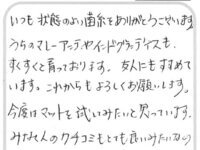 いつも状態のよい菌糸をありがとうございます
うちのマレーアンテやインドグランディスも、
すくすくと育っております。友人にもすすめて
います。これからもよろしくお願いします。
今度はマットを試してみたいと思っています。
みなさんのクチコミもとても良いみたいなので